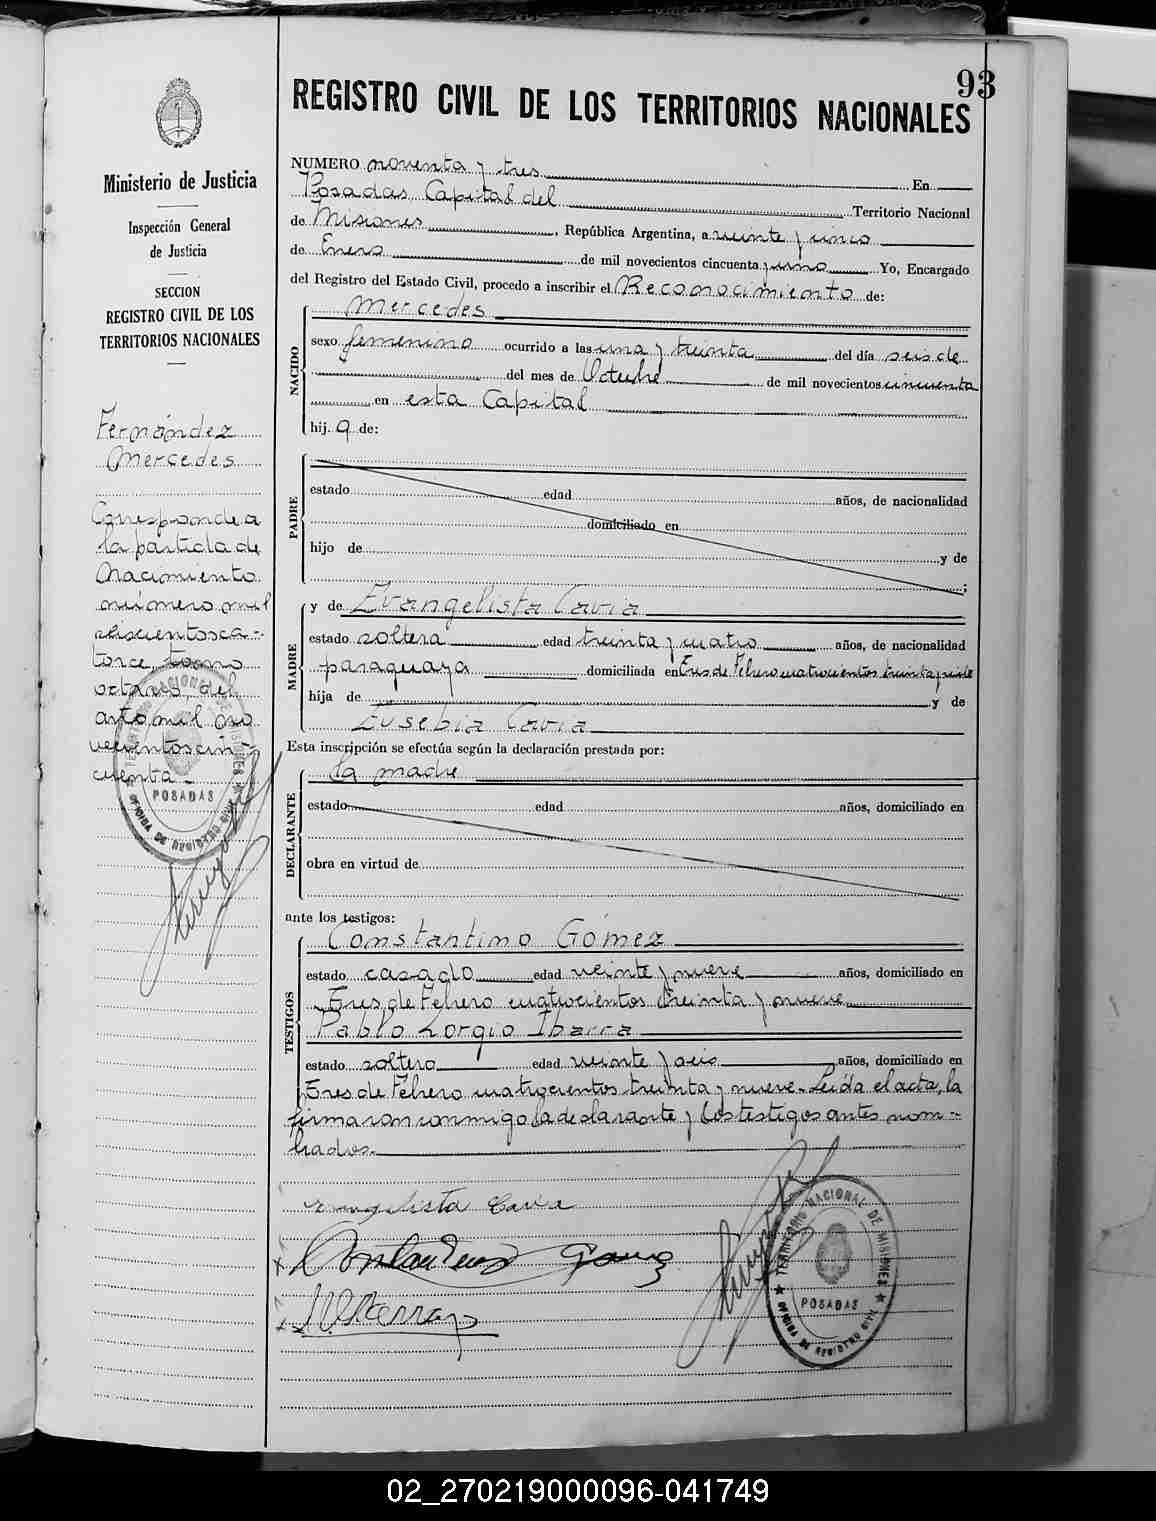 93
REGISTRO CIVIL DE LOS TERRITORIOS NACIONALES
Ministerio de Justicia
Inspección General
de Justicia
SECCION
REGISTRO CIVIL DE LOS
TERRITORIOS NACIONALES
Fernández
Mercedes
Corresponde a
la partida de
Nacimiento
número mil
seiscientos ca-
torce, tomo
octavo, del
año mil no
vecientos cin-
cuenta-
TERRITORIO NACIONAL DE MISIONES
POSADAS
OFICINA DE REGISTRO CIVIL
NUMERO noventa y tres En
Posadas Capital del Territorio Nacional
de Misiones, República Argentina, a veinte y cinco
de Enero de mil novecientos cincuenta y uno Yo, Encargado
del Registro del Estado Civil, procedo a inscribir el Reconocimiento de:
NACIDO
Mercedes
sexo femenino ocurrido a las una y treinta del día seis de
del mes de Octubre de mil novecientos cincuenta
en esta Capital
hij a de:
PADRE
estado edad años, de nacionalidad
domiciliado en
hijo de y de
;
MADRE
y de Evangelista Cavia
estado soltera edad treinta y cuatro años, de nacionalidad
paraguaya domiciliada en Tres de Febrero cuatrocientos treinta y siete
hija de y de
Eusebia Cavia
Esta inscripción se efectúa según la declaración prestada por:
DECLARANTE
la madre
estado edad años, domiciliado en
obra en virtud de
ante los testigos:
TESTIGOS
Constantino Gómez
estado casado edad veinte y nueve años, domiciliado en
Tres de Febrero cuatrocientos treinta y nueve
Pablo Zorgio Ibarra
estado soltero edad veinte y seis años, domiciliado en
Tres de Febrero cuatrocientos treinta y nueve- Leída el acta, la
firmaron conmigo la declarante y los testigos antes nom-
brados.
Evangelista Cavia
Constantino Gomez
TERRITORIO NACIONAL DE MISIONES
POSADAS
OFICINA DE REGISTRO CIVIL
02_270219000096-041749